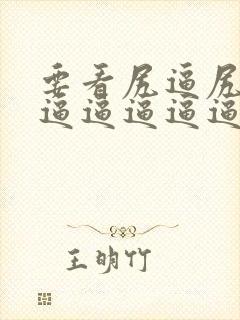 要看尻逼尻
逼逼逼逼逼
王明竹